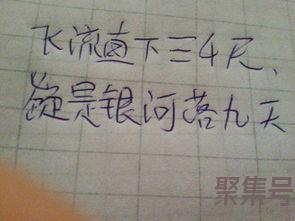 飞流直下三4尺、
疑是银河落九天
聚集号